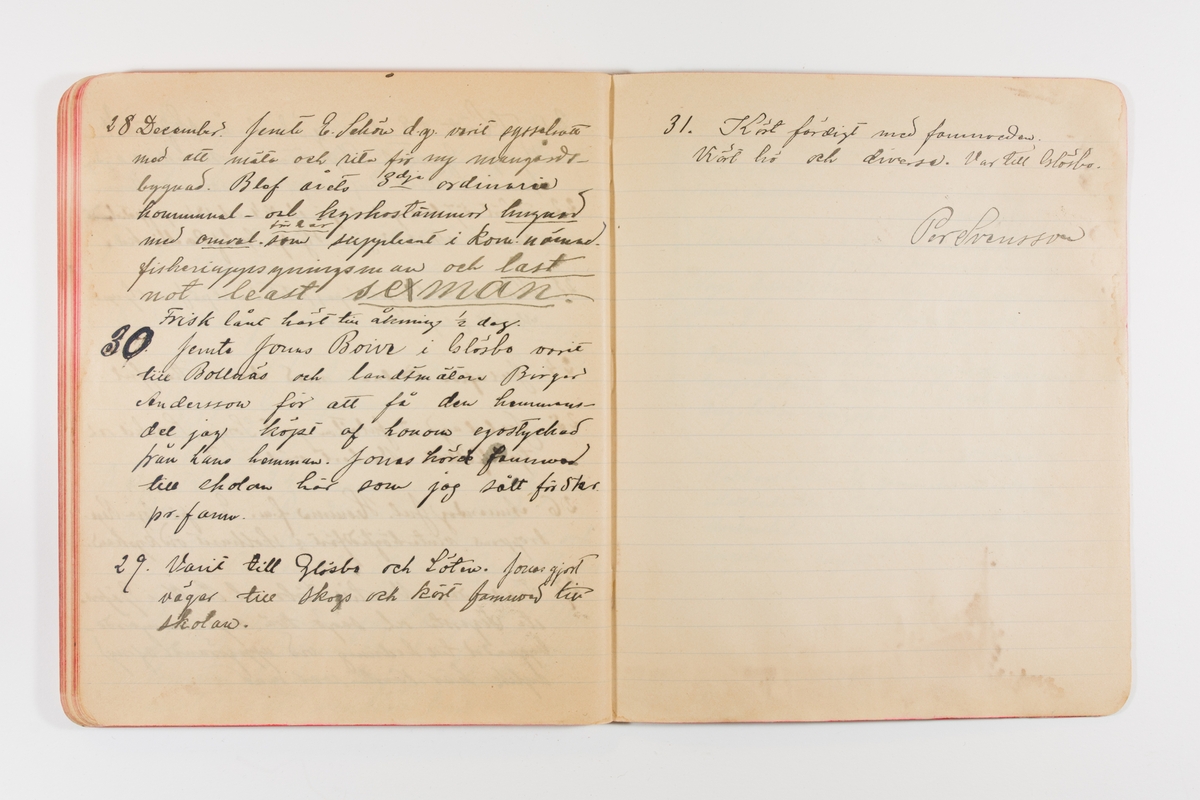 28 December. Jemte E. Schön d.y. varit sysselsatt
med att mäta och rita för ny mangårds-
bygnad. Blef årets 3dje ordinarie
kommunal- och kyrkostämmor
med omval som suppleant i kom. nämnd.
fisheriuppsyningsman och last
not least sexman.
Frisk lånt häst till åkning ½ dag.
30. Jemte Jonas Boive i Glösbo varit
till Bollnäs och landtmätare Birger
Andersson för att få den hemmans-
del jag köpt af honom egostyckad
från hans hemman. Jonas körde famnved
till skolan här som jag sålt för
pr. famn.
29. Varit till Glösbo och Söten. Jonas gjort
vägar till skogs och kört famnved till
skolan.
31. Kört färdigt med famnveden.
Kört hö och diverse. Var till Glösbo.
Per Svensson